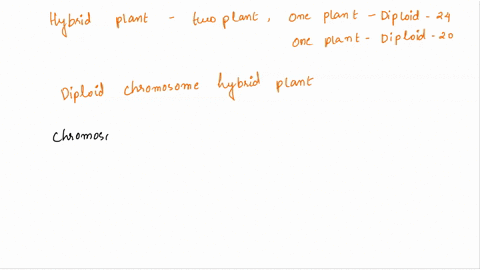 Hybrid plant - two plant, one plant - Diploid - 24
one plant - Diploid - 20
Diploid chromosome hybrid plant
Chromos